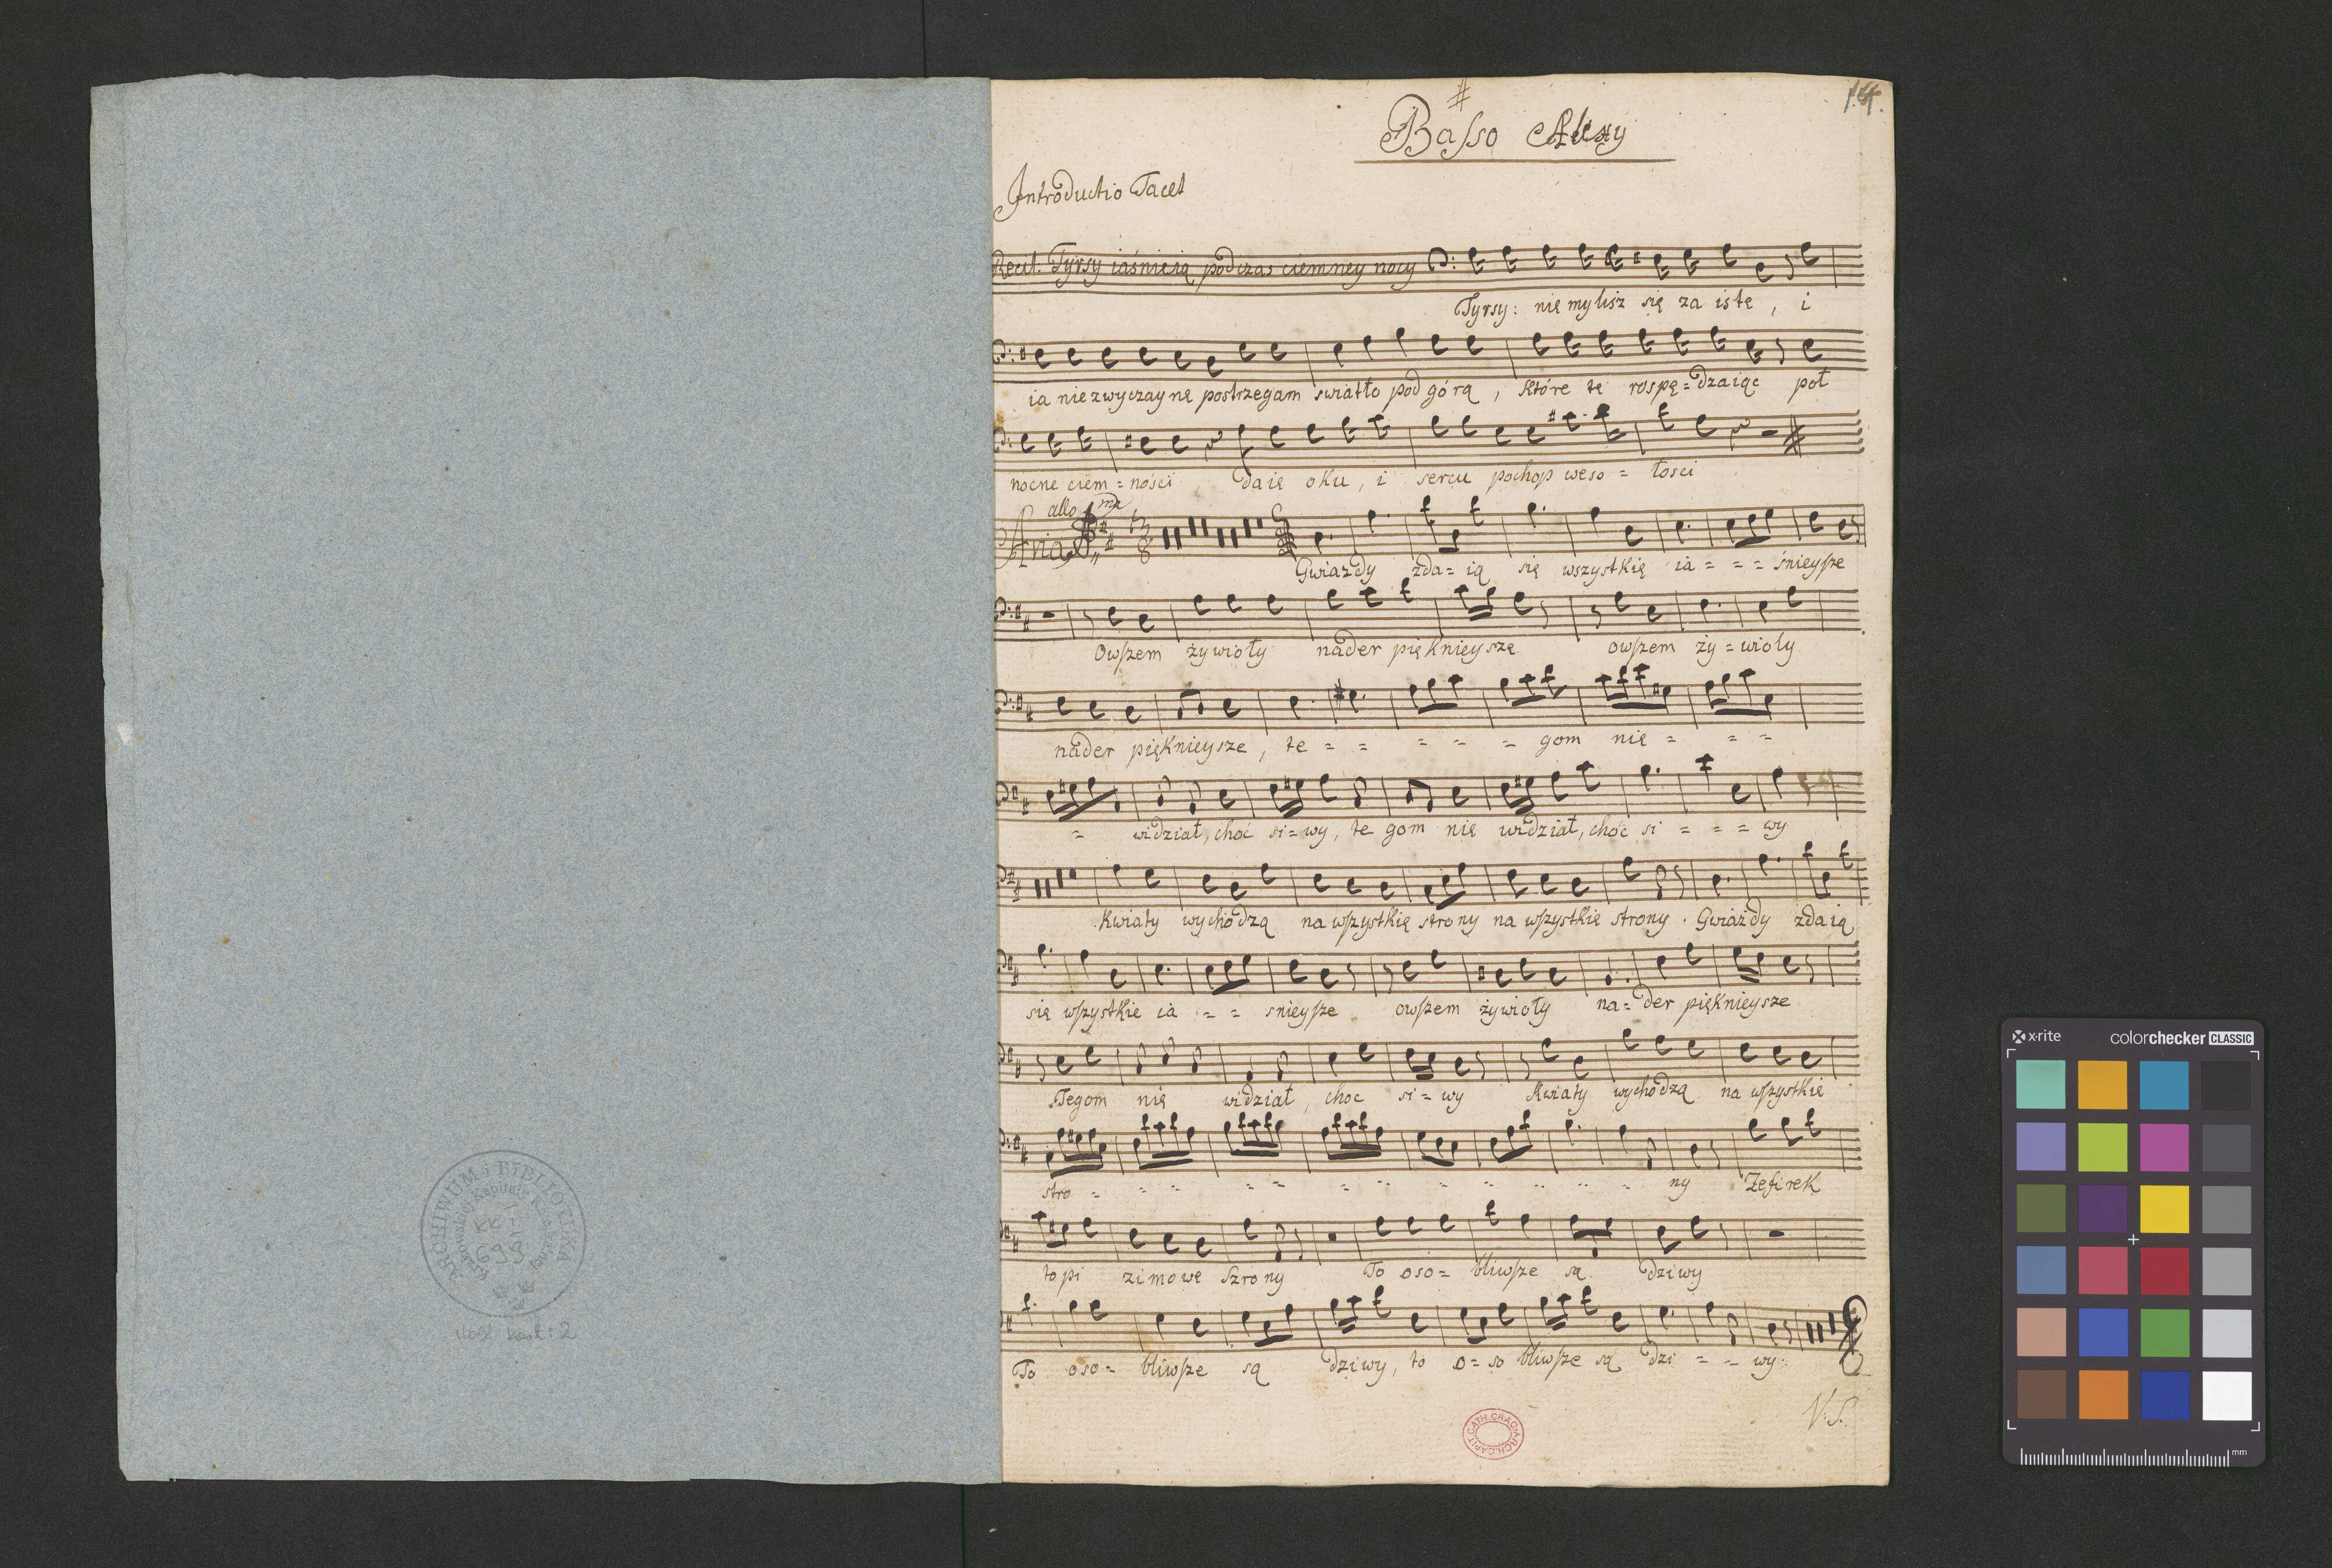 ARCHIWUM i BIBLIOTEKA
Krakowskiej Kapituły Katedralnej
KK I-1
699
ilość kart: 2
Basso
Introductio Tacet
Recit: Tyrsy iaśnieią podczas ciemney nocy
Tyrsy: nie mylisz się za iste, i
ia niezwyczayne postrzegam swiatło pod górą, które te rospę=dzaiąc poł
nocne ciem=ności daie oku, i sercu pochop weso=łosci
Aria allo 3/8
Gwiazdy zda=ią się wszystkie ia=== śnieysze
Owszem żywioły nader pięknieysze owszem ży=wioły
nader pięknieysze, te = = = = = gom nie = = =
= widział, choć si=wy, te gom nie widział, choć si = = = wy
Kwiaty wychodzą na wszystkie strony na wszystkie strony. Gwiazdy zdaią
się wszystkie ia = = snieysze owszem żywioły na=der pięknieysze
Tegom nie widział, choc si=wy Kwiaty wychodzą na wszystkie
stro = = = = = = = = = = = = ny Zefirek
topi zimowe Szrony To oso= bliwsze są dziwy
To oso= bliwsze są dziwy, to o=so bliwsze są dzi = = wy:
V: S:
ARCH. CAPIT. CATH. CRAC.
x-rite
colorchecker CLASSIC
mm